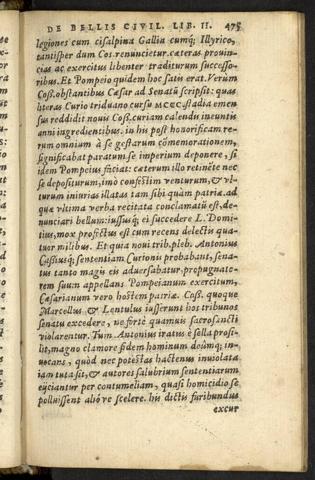 DE BELLIS CIVIL. LIB. II. 475
legiones cum cisalpina Gallia cumq; Illyrico,
tantisper dum Cos. renuncietur. cæteras prouin-
cias ac exercitus libenter traditurum successo-
ribus. Et Pompeio quidem hoc satis erat. Verùm
Coss. obstantibus Cæsar ad Senatũ scripsit: quas
literas Curio triduano cursu MCCC stadia emen-
sus reddidit nouis Coss. curiam calendis ineuntis
anni ingredientibus. in his post honorificam re-
rum omnium à se gestarum cõmemorationem,
significabat paratum se imperium deponere, si
idem Pompeius faciat: cæterum illo retinẽte nec
se depositurum, imò confestim venturum, & vl-
turum iniurias illatas tam sibi quàm patriæ. ad
quæ vltima verba recitata conclamatũ est, de-
nunciari bellum: iussusq; ei succedere L. Domi-
tius, mox profectus est cum recens delectis qua-
tuor milibus. Et quia noui trib. pleb. Antonius
Cassiusq; sententiam Curionis probabant, sena-
tus tanto magis eis aduersabatur. propugnato-
rem suum appellans Pompeianum exercitum,
Cæsarianum vero hostem patriæ. Coss. quoque
Marcellus & Lentulus iusserunt hos tribunos
senatu excedere, ne fortè quamuis sacrosancti
violarentur. Tum Antonius iratus è sella prosi-
lit, magno clamore fidem hominum deûmq; in-
uocans, quòd nec potestas hactenus inuiolata
iam tuta sit, & autores salubrium sententiarum
eijciantur per contumeliam, quasi homicidio se
polluissent alióve scelere. his dictis furibundus
excur